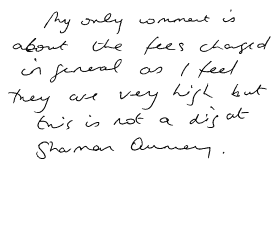 My only comment is
about the fees charged
in general as I feel
they are very high but
this is not a dig at
Sharman